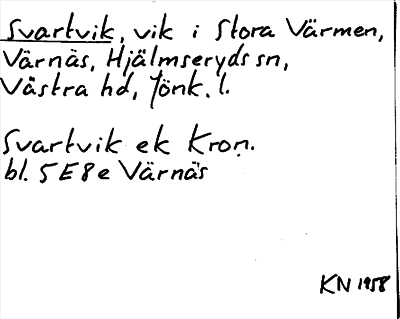 Svartvik, vik i Stora Värmen,
Värnäs, Hjälmseryds sn,
Västra hd, Jönk. l.
Svartvik ek Kron.
bl. 5E8e Värnäs
KN 1958